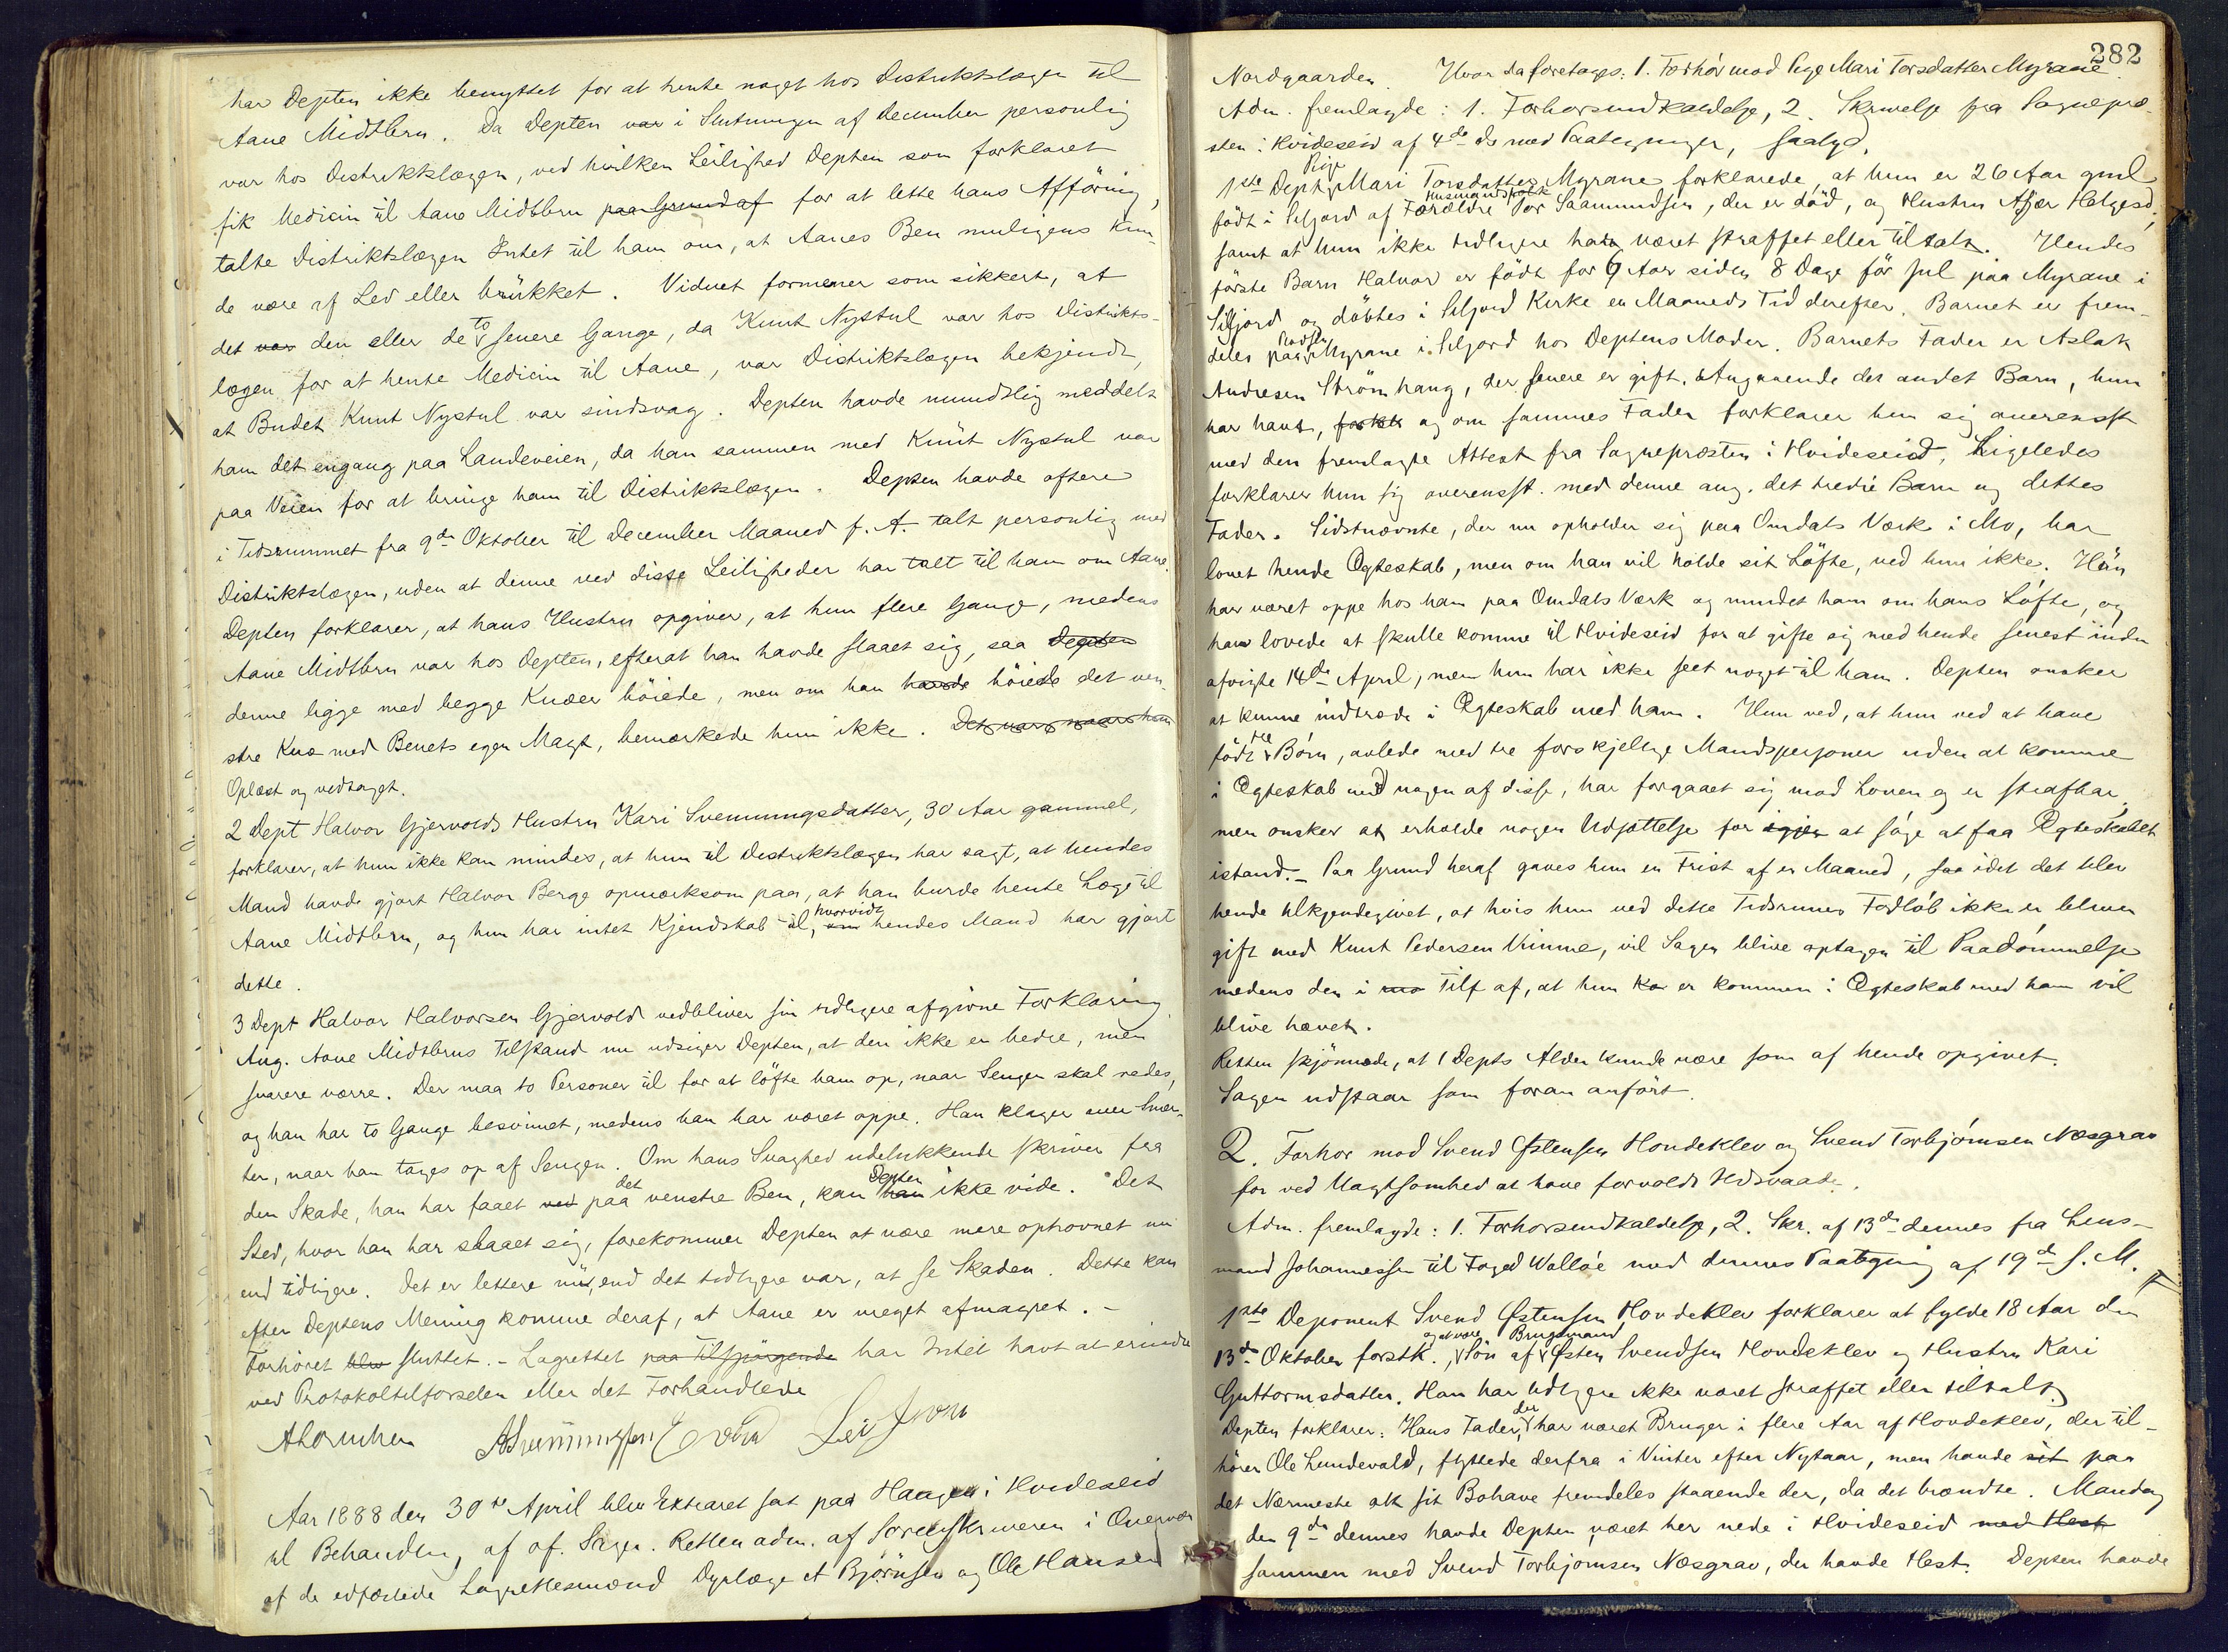 har Depten ikke benyttet for at hente noget hos Distriktslægen til
Aane Midtbru. Da Depten var i Slutningen af December personlig
var hos Distriktslægen, ved hvilken Leilighed Depten som forklaret
fik Medicin til Aane Midtbru paa Grund af for at lette hans Afföring,
talte Distriktslægen Intet til ham om, at Aanes Ben muligens kun-
de være af Led eller brukket. Vidnet formener som sikkert, at
det var den eller de to senere Gange, da Knut Nystul var hos Distrikts-
lægen for at hente Medicin til Aane, var Distriktslægen bekjendt,
at Budet Knut Nystul var sindsvag. Depten havde mundtlig meddelt
ham det engang paa Landeveien, da han sammen med Knut Nystul var
paa Veien for at bringe ham til Distriktslægen. Depten havde oftere
i Tidsrummet fra 9de Oktober til December Maaned f. A. talt personlig med
Distriktslægen, uden at denne ved disse Leiligheder har talt til ham om Aane.
Depten forklarer, at hans Hustru opgiver, at hun flere Gange, medens
Aane Midtbru var hos Depten, efterat han havde slaaet sig, saa Depten
denne ligge med begge Knæer böiede, men om han havde böiede det ven-
stre Knæ med Benets egen Magt, bemærkede hun ikke. Det var, naar han
Oplæst og vedtaget.
2 Dept Halvor Gjervolds Hustru Kari Svenningsdatter, 30 Aar gammel,
forklarer, at hun ikke kan mindes, at hun til Distriktslægen har sagt, at hendes
Mand havde gjort Halvor Berge opmærksom paa, at han burde hente Læge til
Aane Midtbru, og hun har intet Kjendskab til, om hvorvidt hendes Mand har gjort
dette.
3 Dept Halvor Halvorsen Gjervold vedbliver sin tidligere afgivne Forklaring.
Ang. Aane Midtbrus Tilstand nu udsiger Depten, at den ikke er bedre, men
snarere værre. Der maa to Personer til for at löfte ham op, naar Sengen skal redes,
og han har to Gange besvimet, medens han har været oppe. Han klager over Smer-
ter, naar han tages op af Sengen. Om hans Svaghed udelukkende skriver fra
den Skade, han har faaet ved paa det venstre Ben, kan han Depten ikke vide. Det
Sted, hvor han har slaaet sig, forekommer Depten at være mere ophovnet nu
end tidligere. Det er lettere nu, end det tidligere var, at se Skaden. Dette kan
efter Deptens Mening komme deraf, at Aane er meget afmagret. -
Forhöret blev sluttet. - Lagrettet paa Tilspørgende har Intet havt at erindre
ved Protokoltilforselen eller det Forhandlede
Aar 1888 den 30te April blev Extraret sat paa Haugen i Hvideseid
til Behandling af of. Sager. Retten adm. af Sorenskriveren i Overvær
af de edfæstede Lagrettesmænd Dyrlæge et Björnsen og Ole Hansen
282
Nordgaarden. Hvor da foretages: 1. Forhör mod Pige Mari Torsdatter Myrane.
Adm. fremlagde: 1. Forhörsindkaldelse, 2. Skrivelse fra Sognepræ-
sten i Hvideseid af 4de ds med Paategninger, saalyd.
1ste Dept, Pige Mari Torsdatter Myrane forklarede, at hun er 26 Aar gml
födt i Seljord af Forældre Husmandsfolk Tor Saamundsen, der er död, og Hustru Asjer Helgesd.,
samt at hun ikke tidligere har været straffet eller tiltalt. Hendes
förste Barn Halvor er födt for 6 Aar siden 8 Dage för Jul paa Myrane i
Seljord og döbtes i Seljord Kirke en Maaneds Tid derefter. Barnet er frem-
deles paa Pladsen Myrane i Seljord hos Deptens Moder. Barnets Fader er Aslak
Andresen Strömhaug, der senere er gift. Angaaende det andet Barn, hun
har havt, forkl. og om sammes Fader forklarer hun sig overensst
med den fremlagte Attest fra Sognepræsten i Hvideseid, Ligeledes
forklarer hun sig overensst. med denne ang. det tredie Barn og dettes
Fader. Sidstnævnte, der nu opholder sig paa Omdals Værk i Mo, har
lovet hende Ægteskab, men om han vil holde sit Löfte, ved hun ikke. Hun
har været oppe hos ham paa Omdals Værk og mindet ham om hans Löfte, og
han lovede at skulle komme til Hvideseid for at gifte sig med hende senest inden
afvigte 14de April, men hun har ikke seet noget til ham. Depten ønsker
at kunne indtræde i Ægteskab med ham. Hun ved, at hun ved at have
födt tre Börn, avlede med tre forskjellige Mandspersoner uden at komme
i Ægteskab med nogen af disse, har forgaaet sig mod Loven og er strafbar,
men ønsker at erholde nogen Udsættelse for igjen at söge at faa Ægteskabet
istand. - Paa Grund heraf gaves hun en Frist af en Maaned, saa idet det blev
hende tilkjendegivet, at hvis hun ved dette Tidsrums Forlöb ikke er bleven
gift med Knut Pedersen Vinme, vil Sagen blive optagen til Paadömmelse
medens den i mo Tilf af, at hun kor er kommen i Ægteskab med ham vil
blive hævet.
Retten skjönnede, at 1 Depts Alder kunde være som af hende opgivet.
Sagen udstaar som foran anfört.
2. Forhör mod Svend Østensen Hovdeklev og Svend Torbjörnsen Næsgrav
for ved Uagtsomhed at have forvoldt Ildsvaade.
Adm. fremlagde: 1. Forhörsindkaldelse, 2. Skr. af 13de dennes fra Lens-
mand Johannessen til Foged Walløe med dennes Paategning af 19de s. M.
1ste Deponent Svend Østensen Hovdeklev forklarer at fylde 18 Aar den
13de Oktober förstk., og at være Sön af Brugsmand Østen Svendsen Hovdeklev og Hustru Kari
Guttormsdatter. Han har tidligere ikke været straffet eller tiltalt.
Depten forklarer: Hans Fader, der har været Bruger i flere Aar af Hovdeklev, der til-
hörer Ole Lundevald, flyttede derfra i Vinter efter Nytaar, men havde sit paa
det Nærmeste alt sit Bohave fremdeles staaende der, da det brændte. Mandag
den 9de dennes havde Depten været her nede i Hvideseid med Hest
sammen med Svend Torbjörnsen Næsgrav, der havde Hest. Depten havde